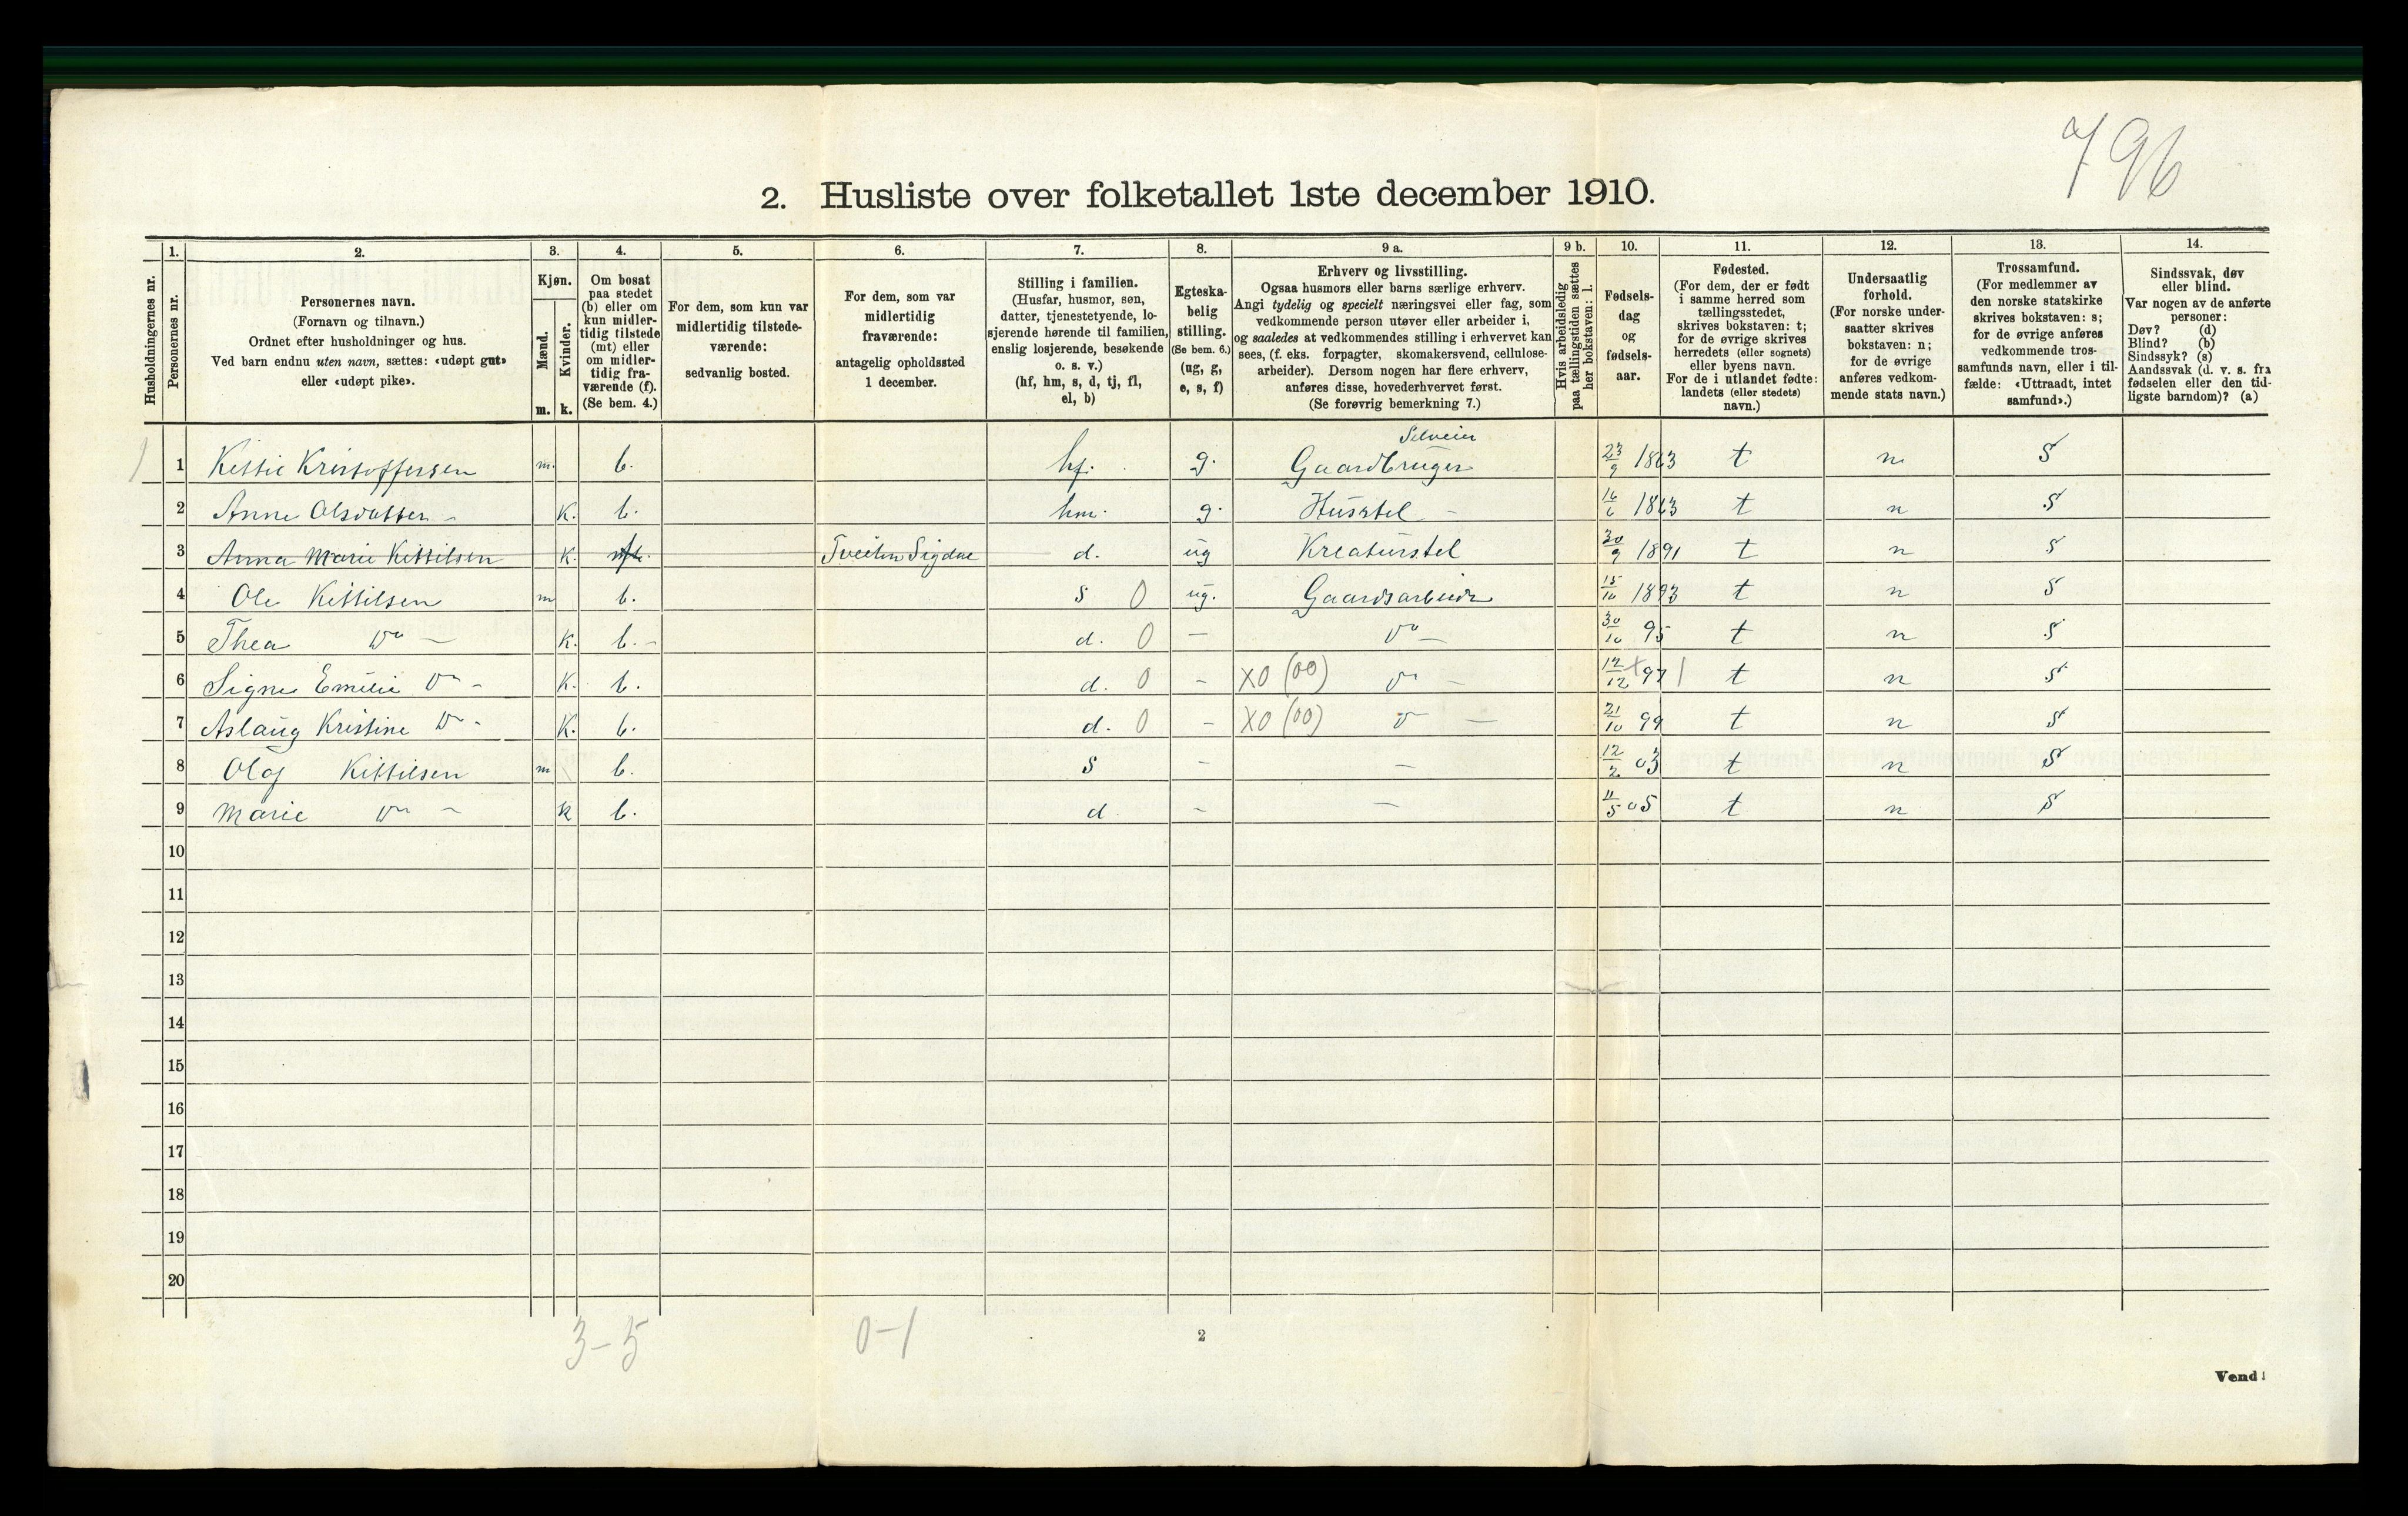 796
2. Husliste over folketallet 1ste december 1910.
Husholdningernes nr.
1. Personernes nr.
2. Personernes navn. (Fornavn og tilnavn.) Ordnet efter husholdninger og hus. Ved barn endnu uten navn, sættes: «udøpt gut» eller «udøpt pike».
3. Kjøn. Mænd. m. Kvinder. k.
4. Om bosat paa stedet (b) eller om kun midlertidig tilstede (mt) eller om midlertidig fraværende (f). (Se bem. 4.)
5. For dem, som kun var midlertidig tilstedeværende: sedvanlig bosted.
6. For dem, som var midlertidig fraværende: antagelig opholdssted 1 december.
7. Stilling i familien. (Husfar, husmor, søn, datter, tjenestetyende, losjerende hørende til familien, enslig losjerende, besøkende o. s. v.) (hf, hm, s, d, tj, fl, el, b)
8. Egteskabelig stilling. (Se bem. 6.) (ug, g, e, s, f)
9 a. Erhverv og livsstilling. Ogsaa husmors eller barns særlige erhverv. Angi tydelig og specielt næringsvei eller fag, som vedkommende person utøver eller arbeider i, og saaledes at vedkommendes stilling i erhvervet kan sees, (f. eks. forpagter, skomakersvend, cellulosearbeider). Dersom nogen har flere erhverv, anføres disse, hovederhvervet først. (Se forøvrig bemerkning 7.)
9 b. Hvis arbeidsledig paa tællingstiden sættes her bokstaven: l.
10. Fødselsdag og fødselsaar.
11. Fødested. (For dem, der er født i samme herred som tællingsstedet, skrives bokstaven: t; for de øvrige skrives herredets (eller sognets) eller byens navn. For de i utlandet fødte: landets (eller stedets) navn.)
12. Undersaatlig forhold. (For norske undersaatter skrives bokstaven: n; for de øvrige anføres vedkommende stats navn.)
13. Trossamfund. (For medlemmer av den norske statskirke skrives bokstaven: s; for de øvrige anføres vedkommende trossamfunds navn, eller i tilfælde: «Uttraadt, intet samfund».)
14. Sindssvak, døv eller blind. Var nogen av de anførte personer: Døv? (d) Blind? (b) Sindssyk? (s) Aandssvak (d. v. s. fra fødselen eller den tidligste barndom)? (a)
1 1 Kittil Kristoffersen m. b. hf. g. Gaardbruger Selveier 23/9 1863 t n S
2 Anne Olsdatter - K. b. hm. g. Husstel - 16/6 1863 t n S
3 Anna Marie Kittilsen K. Tveiten Sigdal d. ug Kreaturstel 30/9 1891 t n S
4 Ole Kittilsen m b. S 0 ug. Gaardsarbeide 15/10 1893 t n S
5 Thea Do - K. b. - d. 0 - Do - 30/10 95 t n S
6 Signe Emilie Do - K. b. d. 0 - X0 (00) Do - 12/12 97 t n S
7 Aslaug Kristine Do - K. b. d. 0 - X0 (00) Do - 21/10 99 t n S
8 Olaf Kittilsen m b. S - - 12/2 03 t n S
9 Marie Do - k b. d - - 11/5 05 t n S
10
11
12
13
14
15
16
17
18
19
20
3-5 0-1
2
Vend!